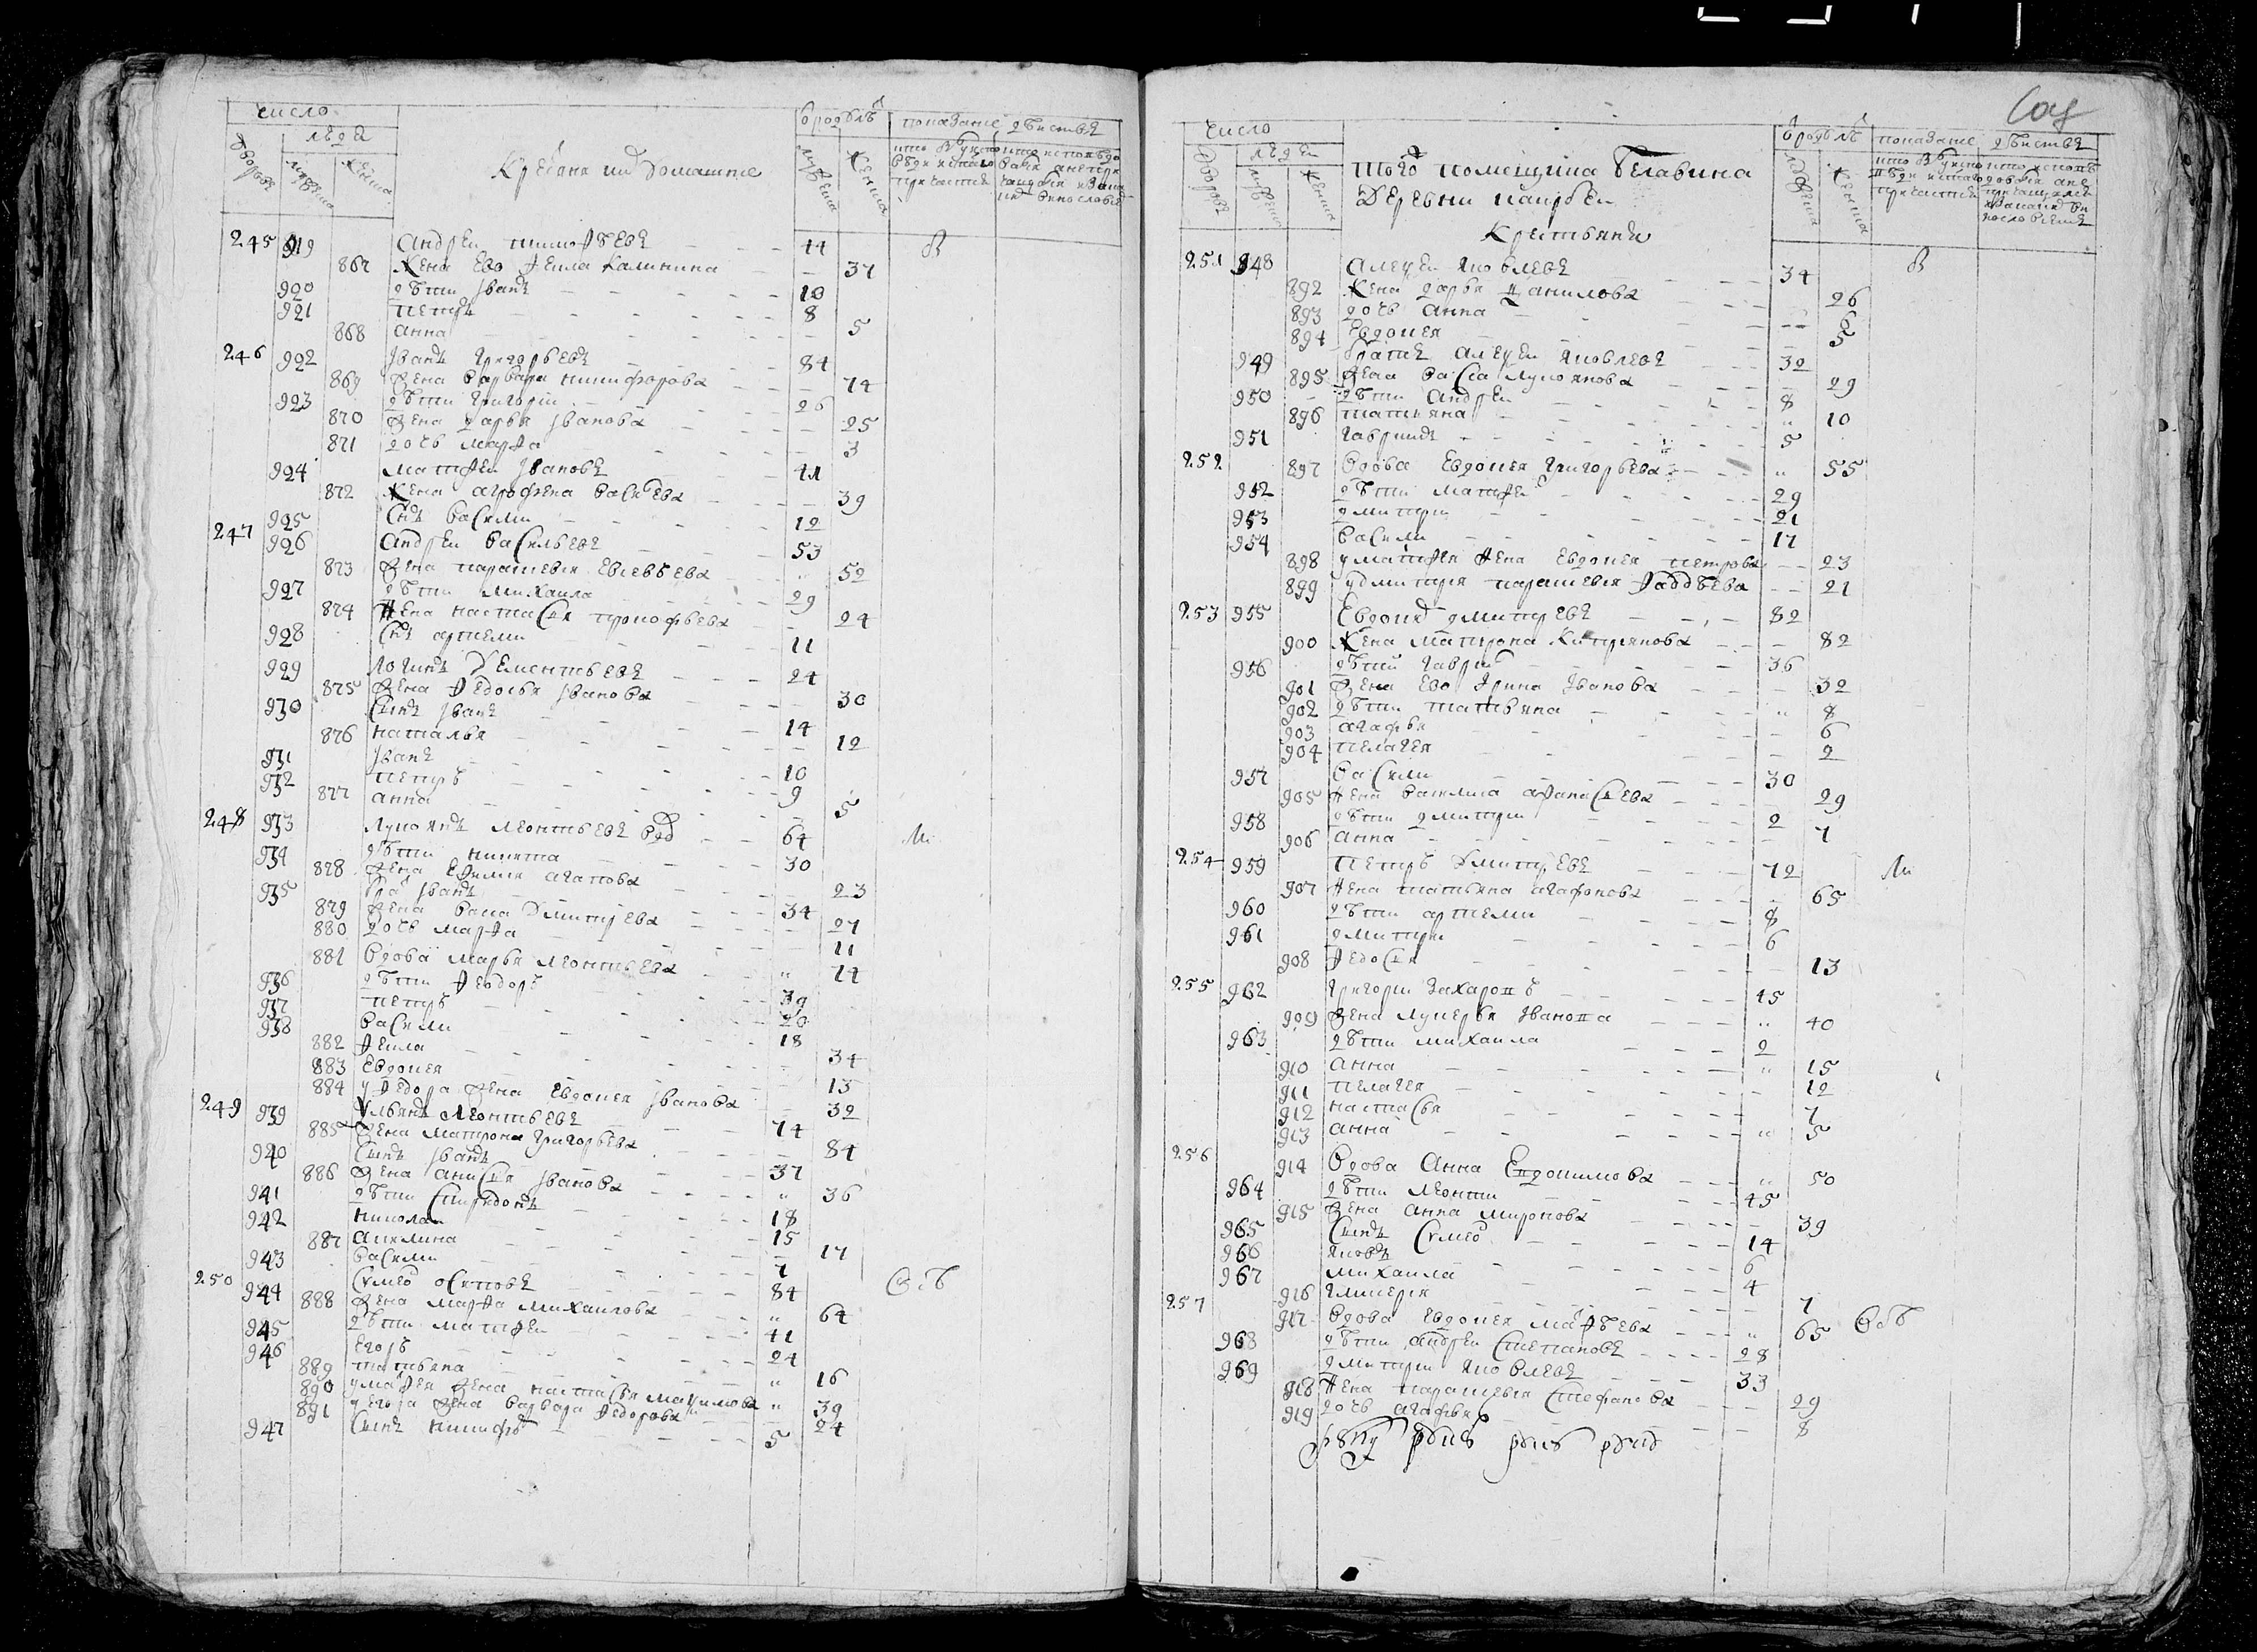 число
людей
дворовъ
мужеска
женска
Крестьяня и их домашние
от рождения лѣт
мужеска
женска
показание действа
245 919 Андреи Тимофѣевъ 44
867 Жена ево Фекла Калинина 37
920 дѣти Иванъ 10
921 Петръ 8
868 Анна 5
246 922 Иванъ Григорьевъ 84
869 Жена Варвара Никифорова 74
923 дѣти Григореи 26
870 Жена Дарья Иванова 25
871 дочь Марфа 3
924 Матфеи Ивановъ 41
872 Жена Агрофена Васильева 39
925 Снъ Васили 12
247 926 Андреи Васильевъ 53
873 Жена Парасковья Евсевѣева 52
927 дѣти Михаила 29
874 Жена Настасья Прокофьева 24
928 Снъ Артемеи 11
929 Логинъ Дементьевъ 24
875 Жена Федосья Иванова 30
930 Сынъ Иванъ 14
876 Наталья 12
931 Иванъ 10
932 Петръ 9
877 Анна 5
248 933 Лукоянъ Леонтьевъ вдв 64
934 дѣти Никита 30
828 Жена Ефимия Агапова 23
935 бра Иванъ 34
879 Жена Васса Дмитреева 27
880 дочь Марфа 11
881 Вдова Марья Леонтьева 74
936 дѣти Феодоръ 39
937 Петръ 20
938 Васили 18
882 Фекла 34
883 Евдокея 13
884 у Федора Жена Евдокея Иванова 32
249 939 Ульянъ Леонтьевъ 74
885 Жена Матрона Григорьева 84
940 Сынъ Иванъ 37
886 Жена Анисья Иванова 36
941 дѣти Спиридонъ 18
942 Николаи 15
887 Акилина 17
943 Васили 7
250 944 Симео Осиповъ 84
888 Жена Марфа Михаилова 64
945 дѣти Матфеи 41
946 Егоръ 24
889 Татьяна 16
890 у Мафея Жена Настасья Максимова 39
891 у Егора Жена Варвара Федорова 24
947 Сынъ Никифъ 5
число
людеи
дворовъ
мужеска
женска
Того помещика Белавина
Деревни
Крестьяня
от рождения лѣт
показание действа
251 948 Алексеи Яковлевъ 34
892 Жена Дарья Данилова 26
893 дочь Анна 6
894 Евдокея 5
949 братъ Алексеи Яковлевъ 32
895 Жена Васса Лукоянова 29
950 дѣти Андреи 8
896 Татьяна 10
951 Гаврилъ 5
252 897 Вдова Евдокея Григорьева 55
952 дѣти Матфеи 29
953 Дмитреи 21
954 Васили 17
898 у Матфея Жена Евдокея Петрова 23
899 у Дмитрея Парасковья Фаддѣева 21
253 955 Евдоким Дмитревъ 82
900 Жена Матрона Киприянова 82
956 дѣти Гаврил 36
901 Жена ево Ирина Иванова 32
902 дѣти Татьяна 8
903 Агафья 6
904 Пелагея 2
957 Васили 30
905 Жена Василиса Афанасьева 29
958 дѣти Дмитреи 2
906 Анна 7
254 959 Петръ Дмитревъ 72
907 Жена Татьяна Агафонова 65
960 дѣти Артемеи 8
961 Дмитреи 6
908 Федосья 13
255 962 Григореи Захаровъ 45
909 Жена Лукерья Иванова 40
963 дѣти Михаила 2
910 Анна 15
911 Пелагея 12
912 Настасья 7
913 Анна 5
256 914 Вдова Анна Евдокимова 50
964 дѣти Леонтеи 45
915 Жена Анна Миронова 39
965 Сынъ Симео 14
966 Яковъ 6
967 Михаила 4
916 Гликерья 7
257 917 Вдова Евдокея Мафѣева 65
968 дѣти Андреи Степановъ 28
969 Дмитреи Яковлевъ 33
918 Жена Парасковья Стефанова 29
919 дочь Агафья 8